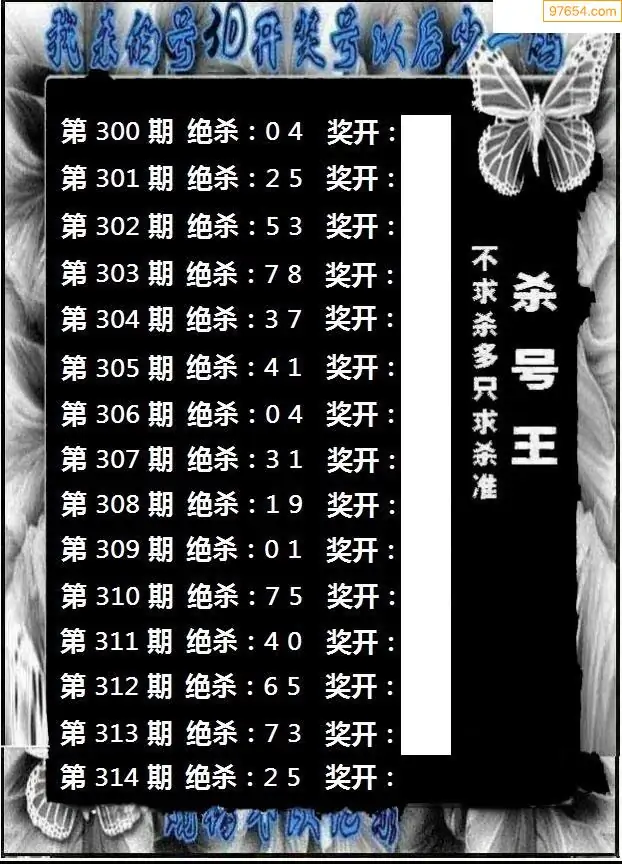 97654.com
我杀的号3D开奖号以后少一码
第 300 期 绝杀：0 4 奖开：
第 301 期 绝杀：2 5 奖开：
第 302 期 绝杀：5 3 奖开：
第 303 期 绝杀：7 8 奖开：
第 304 期 绝杀：3 7 奖开：
第 305 期 绝杀：4 1 奖开：
第 306 期 绝杀：0 4 奖开：
第 307 期 绝杀：3 1 奖开：
第 308 期 绝杀：1 9 奖开：
第 309 期 绝杀：0 1 奖开：
第 310 期 绝杀：7 5 奖开：
第 311 期 绝杀：4 0 奖开：
第 312 期 绝杀：6 5 奖开：
第 313 期 绝杀：7 3 奖开：
第 314 期 绝杀：2 5 奖开：
杀号王
不求杀多只求杀准